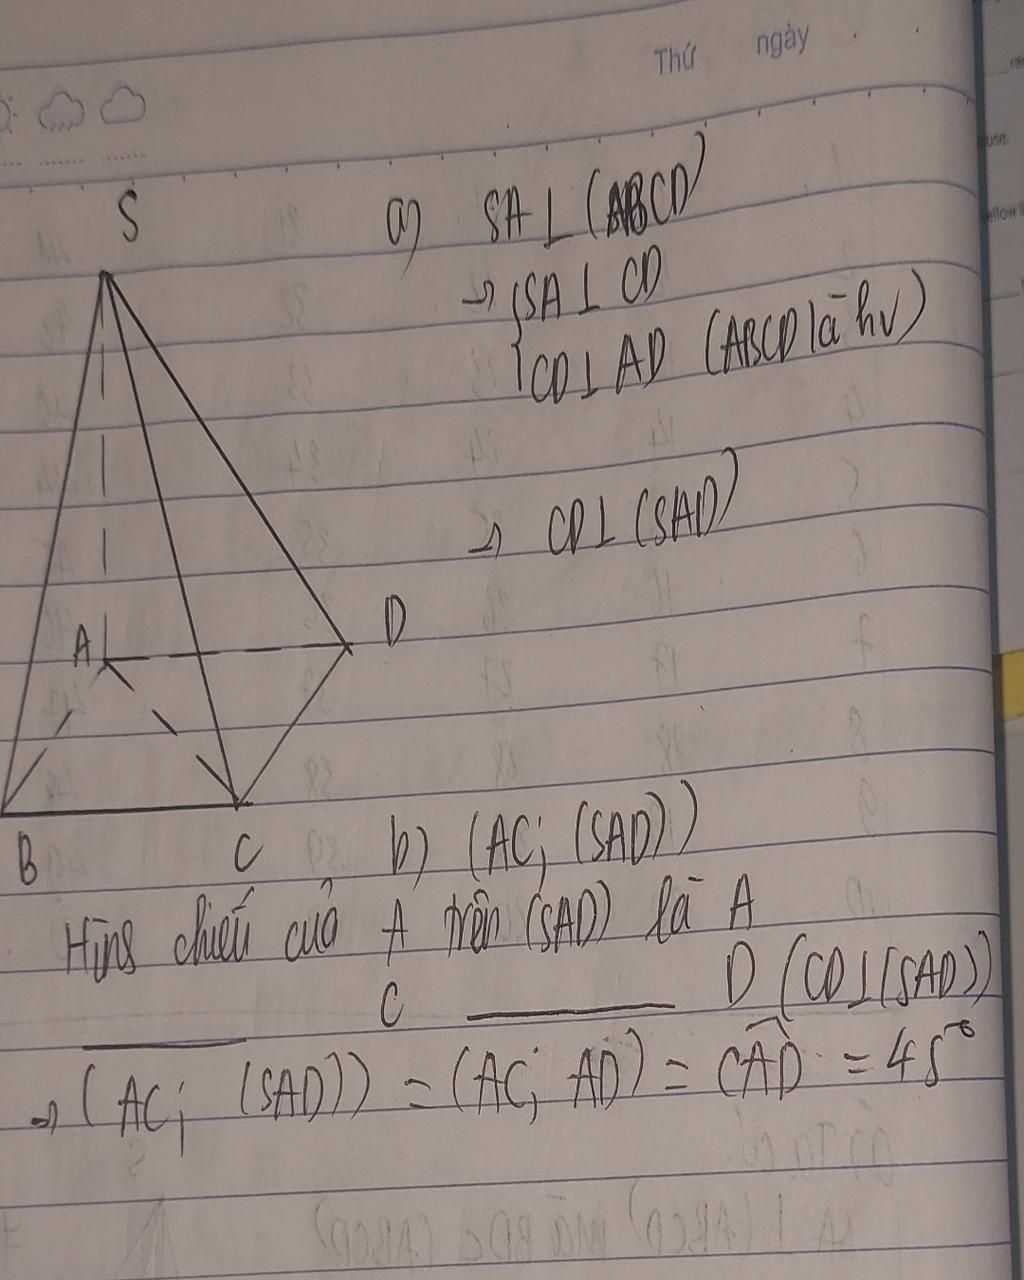 Thứ ngày
S
a) SA ⊥ (ABCD)
→ { SA ⊥ CD
CD ⊥ AD (ABCD là hv)
→ CD ⊥ (SAD)
A D
B C
b) (AC; (SAD))
Hình chiếu của A trên (SAD) là A
C D (CD ⊥ (SAD))
→ (AC; (SAD)) = (AC; AD) = CAD = 45°